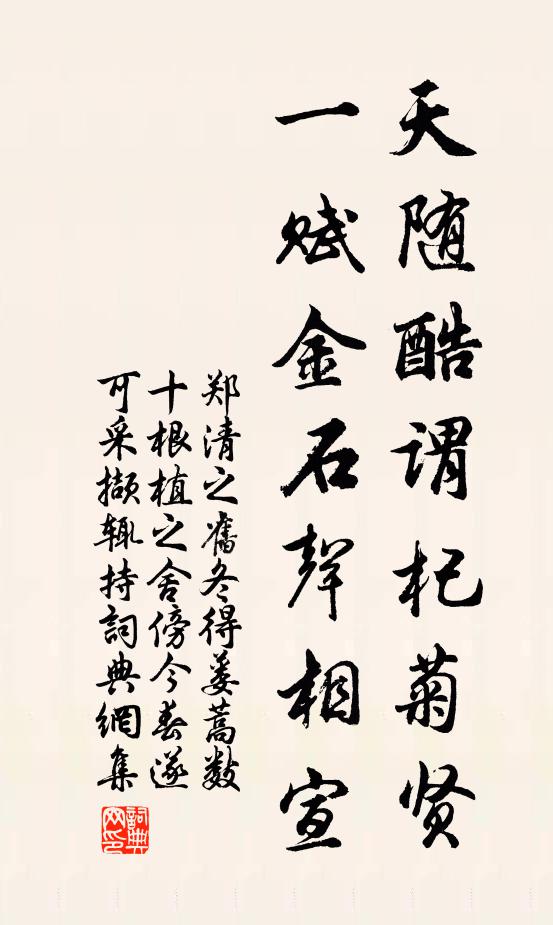 天随酷谓杞菊贤
一赋金石声相宣
郑清之旧冬得蒌蒿数
十根植之舍傍今春遂
可采撷辄持詞典網集
詞典网印